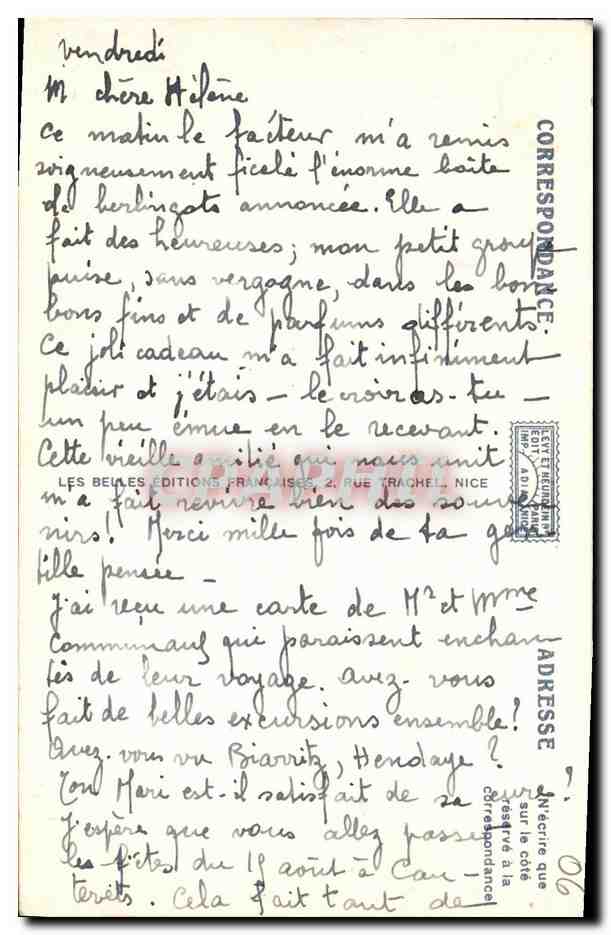 vendredi
M chère Hélène
Ce matin le facteur m'a remis
soigneusement ficelé l'énorme boîte
de berlingots annoncée. Elle a
fait des heureuses ; mon petit groupe
puise, sans vergogne, dans les bon
bons fins et de parfums différents.
Ce joli cadeau m'a fait infiniment
plaisir et j'étais – le croiras-tu –
un peu émue en le recevant.
Cette vieille amitié qui nous unit
LES BELLES ÉDITIONS FRANÇAISES, 2, RUE TRACHEL, NICE
m'a fait revivre bien des souve
nirs ! Merci mille fois de ta gen
tille pensée –
J'ai reçu une carte de Mr et Mme
qui paraissent enchan
tés de leur voyage. avez-vous
fait de belles excursions ensemble !
Avez-vous vu Biarritz, Hendaye ?
Ton Mari est-il satisfait de sa cure ?
J'espère que vous allez passer
les fêtes du 15 août à Cau-
terets. Cela fait tant de
CORRESPONDANCE.
LEVY ET NEURDEIN Rs
ÉDIT. PARIS
IMP. NICE
ADRESSE
N'écrire que
sur le côté
réservé à la
correspondance
06